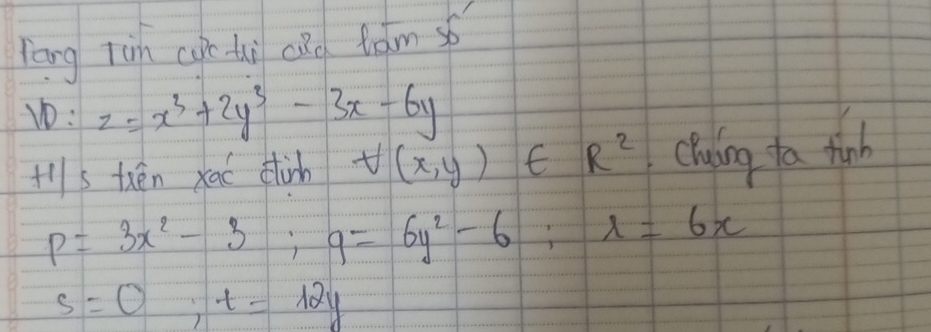 Dạng Tìm cực trị của hàm số
VD: z = x³ + 2y³ - 3x - 6y
+) H/s trên xác định ∀(x,y) ∈ R². Chúng ta tính
p = 3x² - 3 ; q = 6y² - 6 ; r = 6x
s = 0 ; t = 12y